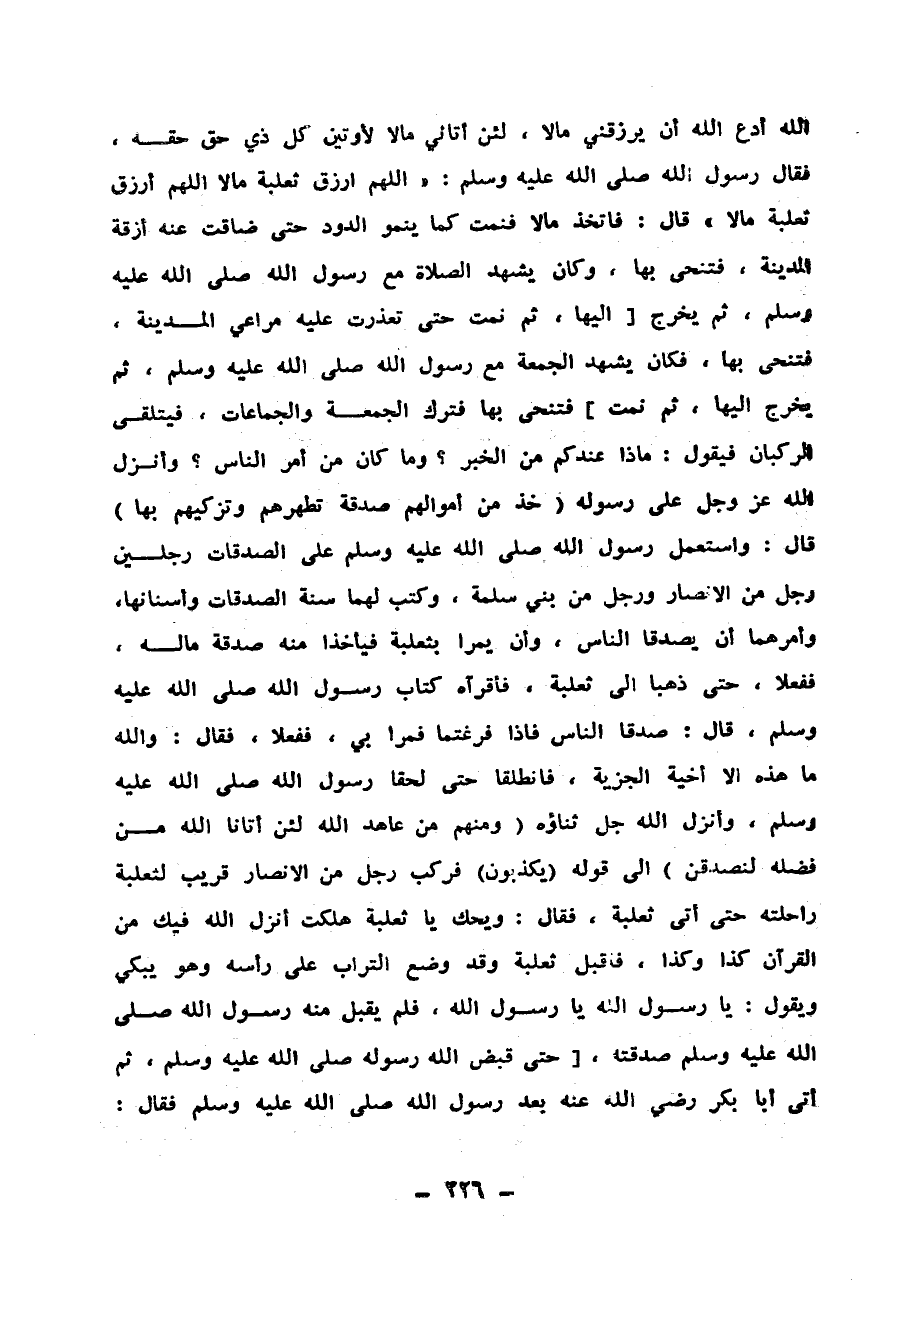 الله أدع الله أن يرزقني مالا ، لئن أتاني مالا لأوتين كل ذي حق حقـــه ،
فقال رسول الله صلى الله عليه وسلم : « اللهم ارزق ثعلبة مالا اللهم أرزق
ثعلبة مالا » قال : فاتخذ مالا فنمت كما ينمو الدود حتى ضاقت عنه أزقة
المدينة ، فتنحى بها ، وكان يشهد الصلاة مع رسول الله صلى الله عليه
وسلم ، ثم يخرج [ اليها ، ثم نمت حتى تعذرت عليه مراعي المـــدينة ،
فتنحى بها ، فكان يشهد الجمعة مع رسول الله صلى الله عليه وسلم ، ثم
يخرج اليها ، ثم نمت ] فتنحى بها فترك الجمعـــة والجماعات ، فيتلقـى
الركبان فيقول : ماذا عندكم من الخبر ؟ وما كان من أمر الناس ؟ وأنـزل
الله عز وجل على رسوله ( خذ من أموالهم صدقة تطهرهم وتزكيهم بها )
قال : واستعمل رسول الله صلى الله عليه وسلم على الصدقات رجلـــين
رجل من الانصار ورجل من بني سلمة ، وكتب لهما سنة الصدقات وأسنانها،
وأمرهما أن يصدقا الناس ، وأن يمرا بثعلبة فيأخذا منه صدقة مالـــه ،
ففعلا ، حتى ذهبا الى ثعلبة ، فأقرآه كتاب رسـول الله صلى الله عليه
وسلم ، قال : صدقا الناس فاذا فرغتما فمرا بي ، ففعلا ، فقال : والله
ما هذه الا أخية الجزية ، فانطلقا حتى لحقا رسول الله صلى الله عليه
وسلم ، وأنزل الله جل ثناؤه ( ومنهم من عاهد الله لئن أتانا الله مـــن
فضله لنصدقن ) الى قوله (يكذبون) فركب رجل من الانصار قريب لثعلبة
راحلته حتى أتى ثعلبة ، فقال : ويحك يا ثعلبة هلكت أنزل الله فيك من
القرآن كذا وكذا ، فأقبل ثعلبة وقد وضع التراب على رأسه وهو يبكي
ويقول : يا رسـول الله يا رسـول الله ، فلم يقبل منه رسـول الله صـلى
الله عليه وسلم صدقته ، [ حتى قبض الله رسوله صلى الله عليه وسلم ، ثم
أتى أبا بكر رضي الله عنه بعد رسول الله صلى الله عليه وسلم فقال :
– ٢٢٦ –